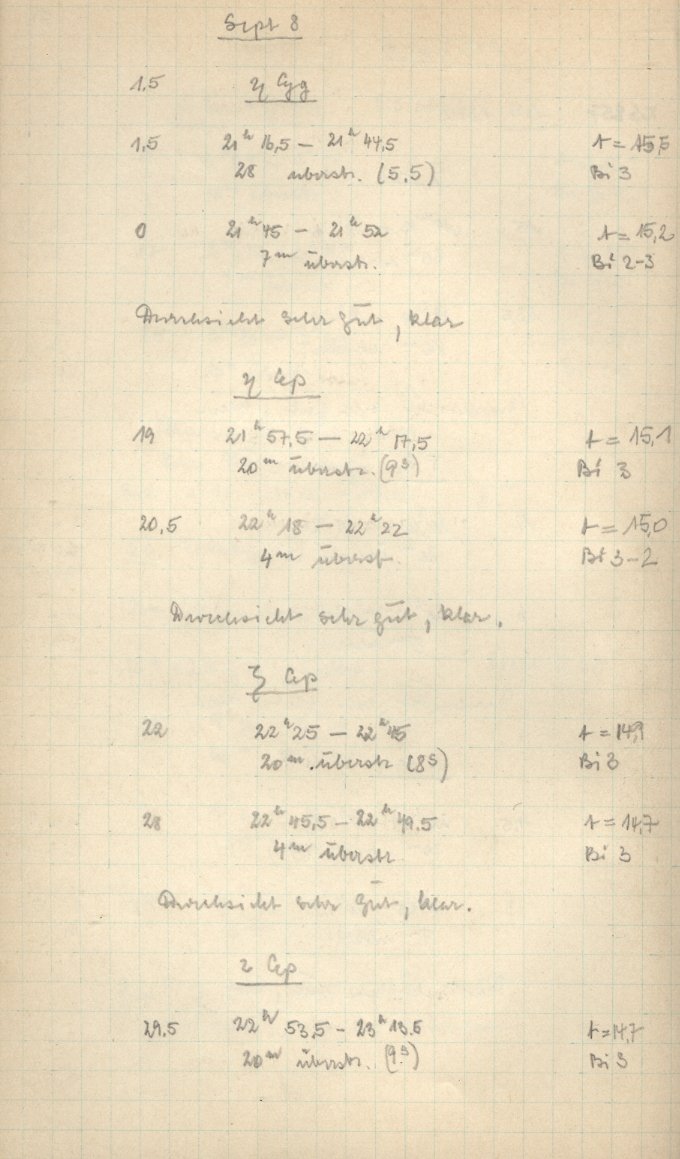 Sept 8
1,5 η Cyg
1,5 21ʰ 16,5 – 21ʰ 44,5 t = 15,5
28 überstr. (5,5) Bi 3
0 21ʰ 45 – 21ʰ 52 t = 15,2
7ᵐ überstr. Bi 2-3
Durchsicht sehr gut, klar
η Cep
19 21ʰ 57,5 — 22ʰ 17,5 t = 15,1
20ᵐ überstr. (9ˢ) Bi 3
20,5 22ʰ 18 – 22ʰ 22 t = 15,0
4ᵐ überst. Bi 3-2
Durchsicht sehr gut, klar.
ζ Cep
22 22ʰ 25 – 22ʰ 45 t = 14,9
20ᵐ. überstr (8ˢ) Bi 3
28 22ʰ 45,5 – 22ʰ 49.5 t = 14,7
4ᵐ überstr Bi 3
Durchsicht sehr gut, klar.
Cep
29.5 22ʰ 53,5 – 23ʰ 13.5 t = 14,7
20ᵐ überstr. (9ˢ) Bi 3